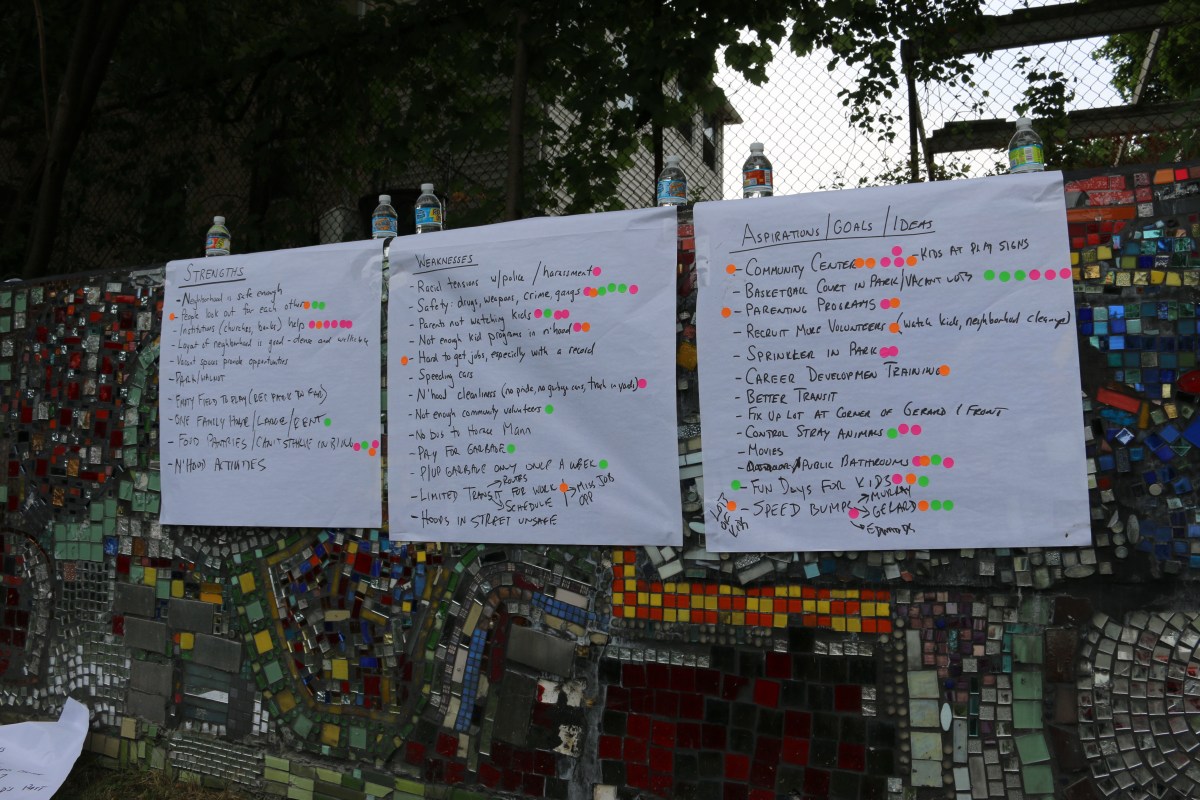 STRENGTHS
- Neighborhood is safe enough
- People look out for each other
- Institutions (churches, banks) help
- Layout of neighborhood is good - dense and walkable
- Vacant spaces provide opportunities
- PARK/VACANT
- EMPTY FIELD TO PLAY
- ONE FAMILY HOME / LARGE / RENT
- FOOD PANTRIES / CAN'T STARVE IN BING
- N'HOOD ACTIVITIES
WEAKNESSES
- Racial tensions w/police / harassment
- Safety: drugs, weapons, crime, gangs
- Parents not watching kids
- Not enough kid programs in n'hood
- Hard to get jobs, especially with a record
- Speeding cars
- N'hood cleanliness (no pride, no garbage cans, trash in yards)
- Not enough community volunteers
- No bus to Horace Mann
- PAY FOR GARBAGE
- P/UP GARBAGE ONLY ONCE A WEEK
- LIMITED TRANSIT → ROUTES FOR WORK → MISS JOB OPP
→ SCHEDULE
- HOOPS IN STREET UNSAFE
ASPIRATIONS / GOALS / IDEAS
- COMMUNITY CENTER - KIDS AT PLAY SIGNS
- BASKETBALL COURT IN PARK/VACANT LOTS
- PARENTING PROGRAMS
- RECRUIT MORE VOLUNTEERS (watch kids, neighborhood cleanups)
- SPRINKLER IN PARK
- CAREER DEVELOPMEN TRAINING
- BETTER TRANSIT
- FIX UP LOT AT CORNER OF GERARD / FRONT
- CONTROL STRAY ANIMALS
- MOVIES
- PUBLIC BATHROOMS
- FUN DAYS FOR KIDS
LOTS OF KIDS - SPEED BUMPS → MURRAY
→ GERARD
→ EDMONDS